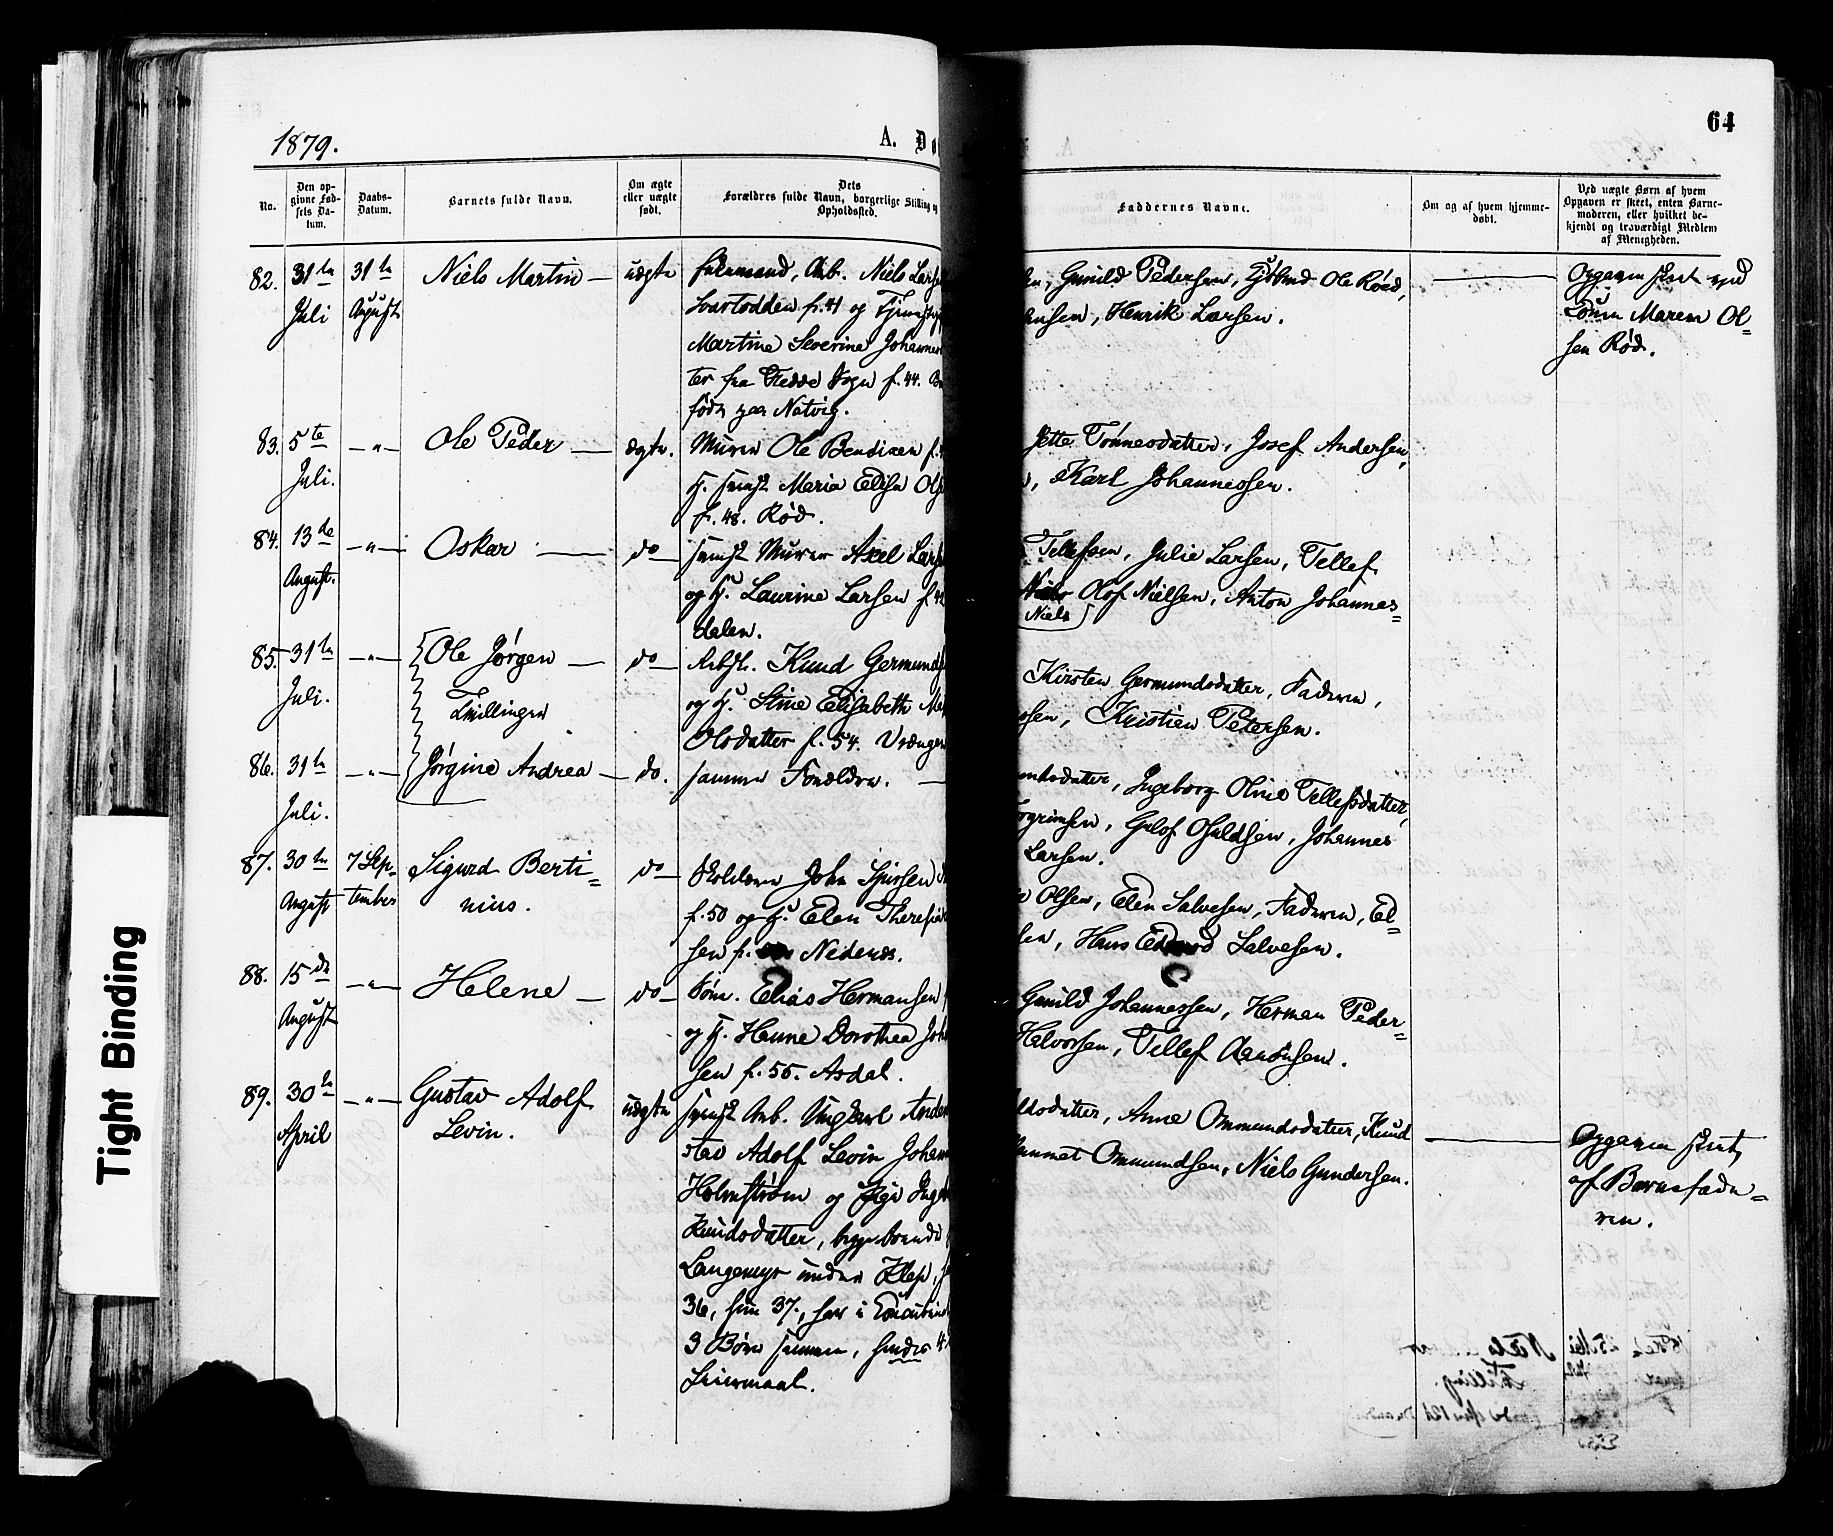 1879.
A. Dø
64
No.
Den op-
givne Fød-
sels Da-
tum.
Daabs-
Datum.
Barnets fulde Navn.
Om ægte
eller uægte
født.
Dets
Forældres fulde Navn, borgerlige Stilling og
Opholdssted.
Faddernes Navne.
Om og af hvem hjemme-
døbt.
Ved uægte Børn af hvem
Opgaven er skeet, enten Barne-
moderen, eller hvilket be-
kjendt og troværdigt Medlem
af Menigheden.
82. 31te 31te Niels Martin — uægte Arb. Niels Larse
Juli August Svartodden f. 41 og
Martine Severine Johannes
ter fra Hedde Sogn f. 44.
født paa Natvig.
Gunild Pedersen, Ole Røed,
ansen, Henrik Larsen.
Opgaven skeet ved
Maren Ol=
sen Rød.
83. 5te — " — Ole Peder — ægte. Murer Ole Bendixen f.
Juli. H. Maria Elise Ols
f. 48. Rød.
Jette Tönnesdatter, Josef Andersen,
, Karl Johannessen.
84. 13de — " — Oskar — do — Murer Axel Larse
August. og H. Laurine Larsen f. 42
dalen.
Tellefsen, Julie Larsen, Tellef
Niels Olof Nielsen, Anton Johannes=
Niels
85. 31te — " — Ole Jørgen — do — Arbsk. Knud Germunds
Juli. Tvillinger og H. Stine Elisabeth
Olsdatter f. 54. Vrængen
Kirsten Germundsdatter, Faderen,
ssen, Kristien Petersen.
86. 31te — " — Jørgine Andrea — do. samme Forældre. —
Juli.
undsdatter, Ingeborg Oline Tellefsdatter,
orgrimsen, Gulof Osuldsen, Johannes
Larsen.
87. 30te 7 Sep- Sigurd Berti= do — John
August tember nius. f. 50 og H. Elen Therese
sen f. Nedenes.
Olsen, Elen Salvesen, Faderen, El=
sen, Hans Edvard Salvesen.
88. 15de — " — Helene — do — Tøm. Elias Hermansen
August og H. Hanne Dorothea Joh
sen f. 50. Asdal.
Gunild Johannessen, Herman Peder=
Halvorsen, Tellef Aanonsen.
89. 30te — " — Gustav Adolf uægte Arb. Ungkarl Ander
April Levin. stav Adolf Levin Johan
Holmstrøm og Pige Inge
Knudsdatter, begge boende
Langemyr under Klep,
36, hun 37., har
3 Børn sammen, hendes 4
Leiermaal.
ldsdatter, Anne Ommundsdatter, Knud
Ommundsen, Niels Gundersen.
Opgaven skeet
af Barnefade=
ren.
Tight Binding